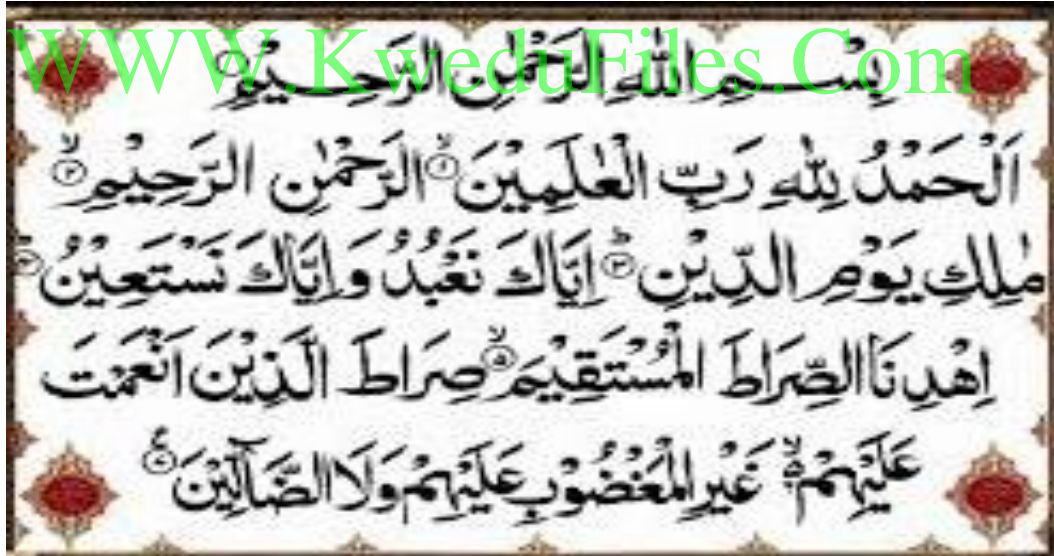 WWW.KweduFiles.Com
بِسْمِ اللّٰهِ الرَّحْمٰنِ الرَّحِيْمِ
اَلْحَمْدُ لِلّٰهِ رَبِّ الْعٰلَمِيْنَ ۙ﴿۱﴾ الرَّحْمٰنِ الرَّحِيْمِ ۙ﴿۲﴾
مٰلِكِ يَوْمِ الدِّيْنِ ؕ﴿۳﴾ اِيَّاكَ نَعْبُدُ وَاِيَّاكَ نَسْتَعِيْنُ ؕ﴿۴﴾
اِهْدِنَا الصِّرَاطَ الْمُسْتَقِيْمَ ۙ﴿۵﴾ صِرَاطَ الَّذِيْنَ اَنْعَمْتَ
عَلَيْهِمْ ۙ﴿۶﴾ غَيْرِ الْمَغْضُوْبِ عَلَيْهِمْ وَلَا الضَّآلِّيْنَ ﴿۷﴾